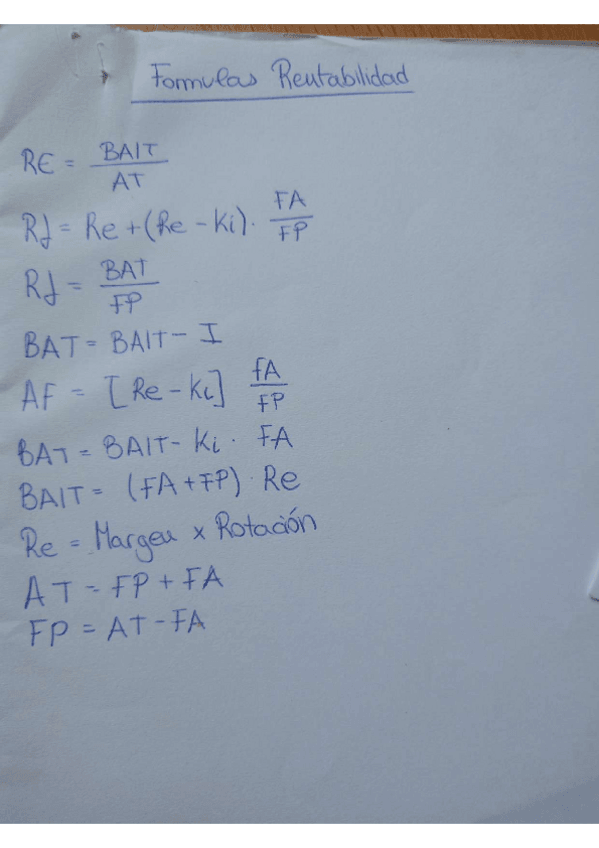 Formulas Rentabilidad
RE = BAIT / AT
Rf = Re + (Re - Ki) · FA / FP
Rf = BAT / FP
BAT = BAIT - I
AF = [Re - Ki] FA / FP
BAT = BAIT - Ki · FA
BAIT = (FA + FP) · Re
Re = Margen x Rotación
AT = FP + FA
FP = AT - FA